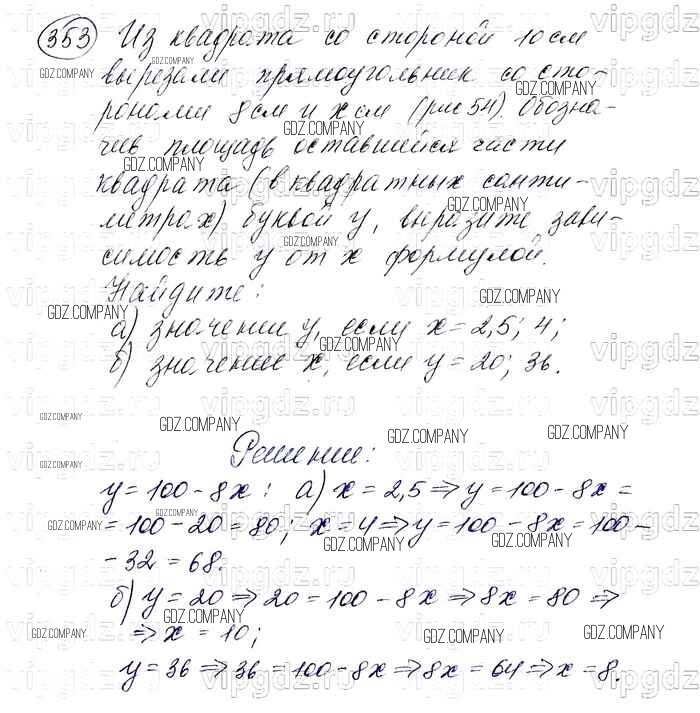 353 Из квадрата со стороной 10 см
вырезали прямоугольник со сто-
ронами 8 см и x см (рис 54). Обозна-
чив площадь оставшейся части
квадрата (в квадратных санти-
метрах) буквой y, выразите зави-
симость y от x формулой.
Найдите:
а) значении y, если x = 2,5; 4;
б) значение x, если y = 20; 36.
Решение:
y = 100 - 8x : а) x = 2,5 ⇒ y = 100 - 8x =
= 100 - 20 = 80; x = 4 ⇒ y = 100 - 8x = 100 -
- 32 = 68.
б) y = 20 ⇒ 20 = 100 - 8x ⇒ 8x = 80 ⇒
⇒ x = 10;
y = 36 ⇒ 36 = 100 - 8x ⇒ 8x = 64 ⇒ x = 8.